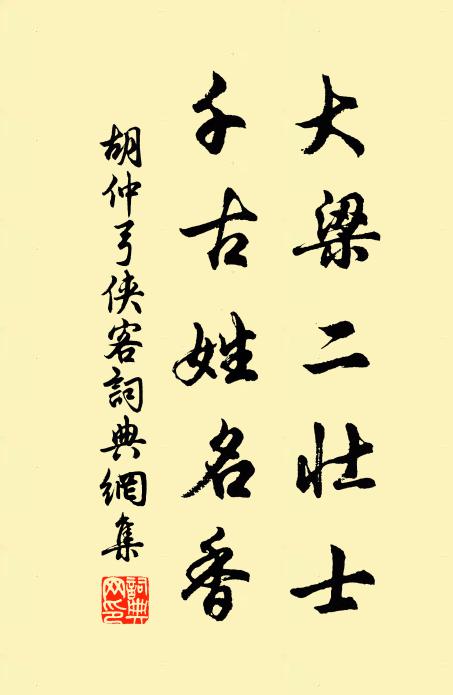 大梁二壯士
千古姓名香
胡仲弓俠客詞典網集
詞典網印